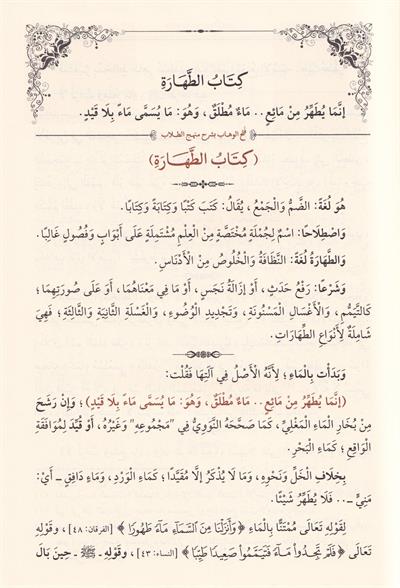 كِتَابُ الطَّهَارَةِ
إِنَّمَا يُطَهِّرُ مِنْ مَائِعٍ .. مَاءٌ مُطْلَقٌ ، وَهُوَ: مَا يُسَمَّى مَاءً بِلَا قَيْدٍ.
فتح الوهاب بشرح منهج الطلاب
(كِتَابُ الطَّهَارَةِ)
هُوَ لُغَةً: الضَّمُّ وَالْجَمْعُ ، يُقَالُ: كَتَبَ كَتْبًا وَكِتَابَةً وَكِتَابًا.
وَاصْطِلَاحًا: اسْمٌ لِجُمْلَةٍ مُخْتَصَّةٍ مِنْ الْعِلْمِ مُشْتَمِلَةٍ عَلَى أَبْوَابٍ وَفُصُولٍ غَالِبًا.
وَالطَّهَارَةُ لُغَةً: النَّظَافَةُ وَالْخُلُوصُ مِنْ الْأَدْنَاسِ.
وَشَرْعًا: رَفْعُ حَدَثٍ ، أَوْ إزَالَةُ نَجَسٍ ، أَوْ مَا فِي مَعْنَاهُمَا ، أَوْ عَلَى صُورَتِهِمَا ؛
كَالتَّيَمُّمِ ، وَالْأَغْسَالِ الْمَسْنُونَةِ ، وَتَجْدِيدِ الْوُضُوءِ ، وَالْغَسْلَةِ الثَّانِيَةِ وَالثَّالِثَةِ ؛ فَهِيَ
شَامِلَةٌ لِأَنْوَاعِ الطَّهَارَاتِ.
وَبَدَأْت بِالْمَاءِ ؛ لِأَنَّهُ الْأَصْلُ فِي آلَتِهَا فَقُلْت:
(إنَّمَا يُطَهِّرُ مِنْ مَائِعٍ .. مَاءٌ مُطْلَقٌ ، وَهُوَ: مَا يُسَمَّى مَاءً بِلَا قَيْدٍ) ؛ وَإِنْ رَشَحَ
مِنْ بُخَارِ الْمَاءِ الْمَغْلِيِّ ، كَمَا صَحَّحَهُ النَّوَوِيُّ فِي "مَجْمُوعِهِ" وَغَيْرُهُ ، أَوْ قُيِّدَ لِمُوَافَقَةِ
الْوَاقِعِ ؛ كَمَاءِ الْبَحْرِ.
بِخِلَافِ الْخَلِّ وَنَحْوِهِ ، وَمَا لَا يُذْكَرُ إلَّا مُقَيَّدًا ؛ كَمَاءِ الْوَرْدِ ، وَمَاءٍ دَافِقٍ - أَيْ:
مَنِيٍّ - .. فَلَا يُطَهِّرُ شَيْئًا.
لِقَوْلِهِ تَعَالَى مُمْتَنًّا بِالْمَاءِ ﴿ وَأَنْزَلْنَا مِنَ السَّمَآءِ مَآءً طَهُورًا ﴾ [الفرقان: ٤٨] ، وَقَوْلِهِ
تَعَالَى ﴿ فَلَمْ تَجِدُوا۟ مَآءً فَتَيَمَّمُوا۟ صَعِيدًا طَيِّبًا ﴾ [النساء: ٤٣] ، وَقَوْلِهِ - ﷺ - حِينَ بَالَ